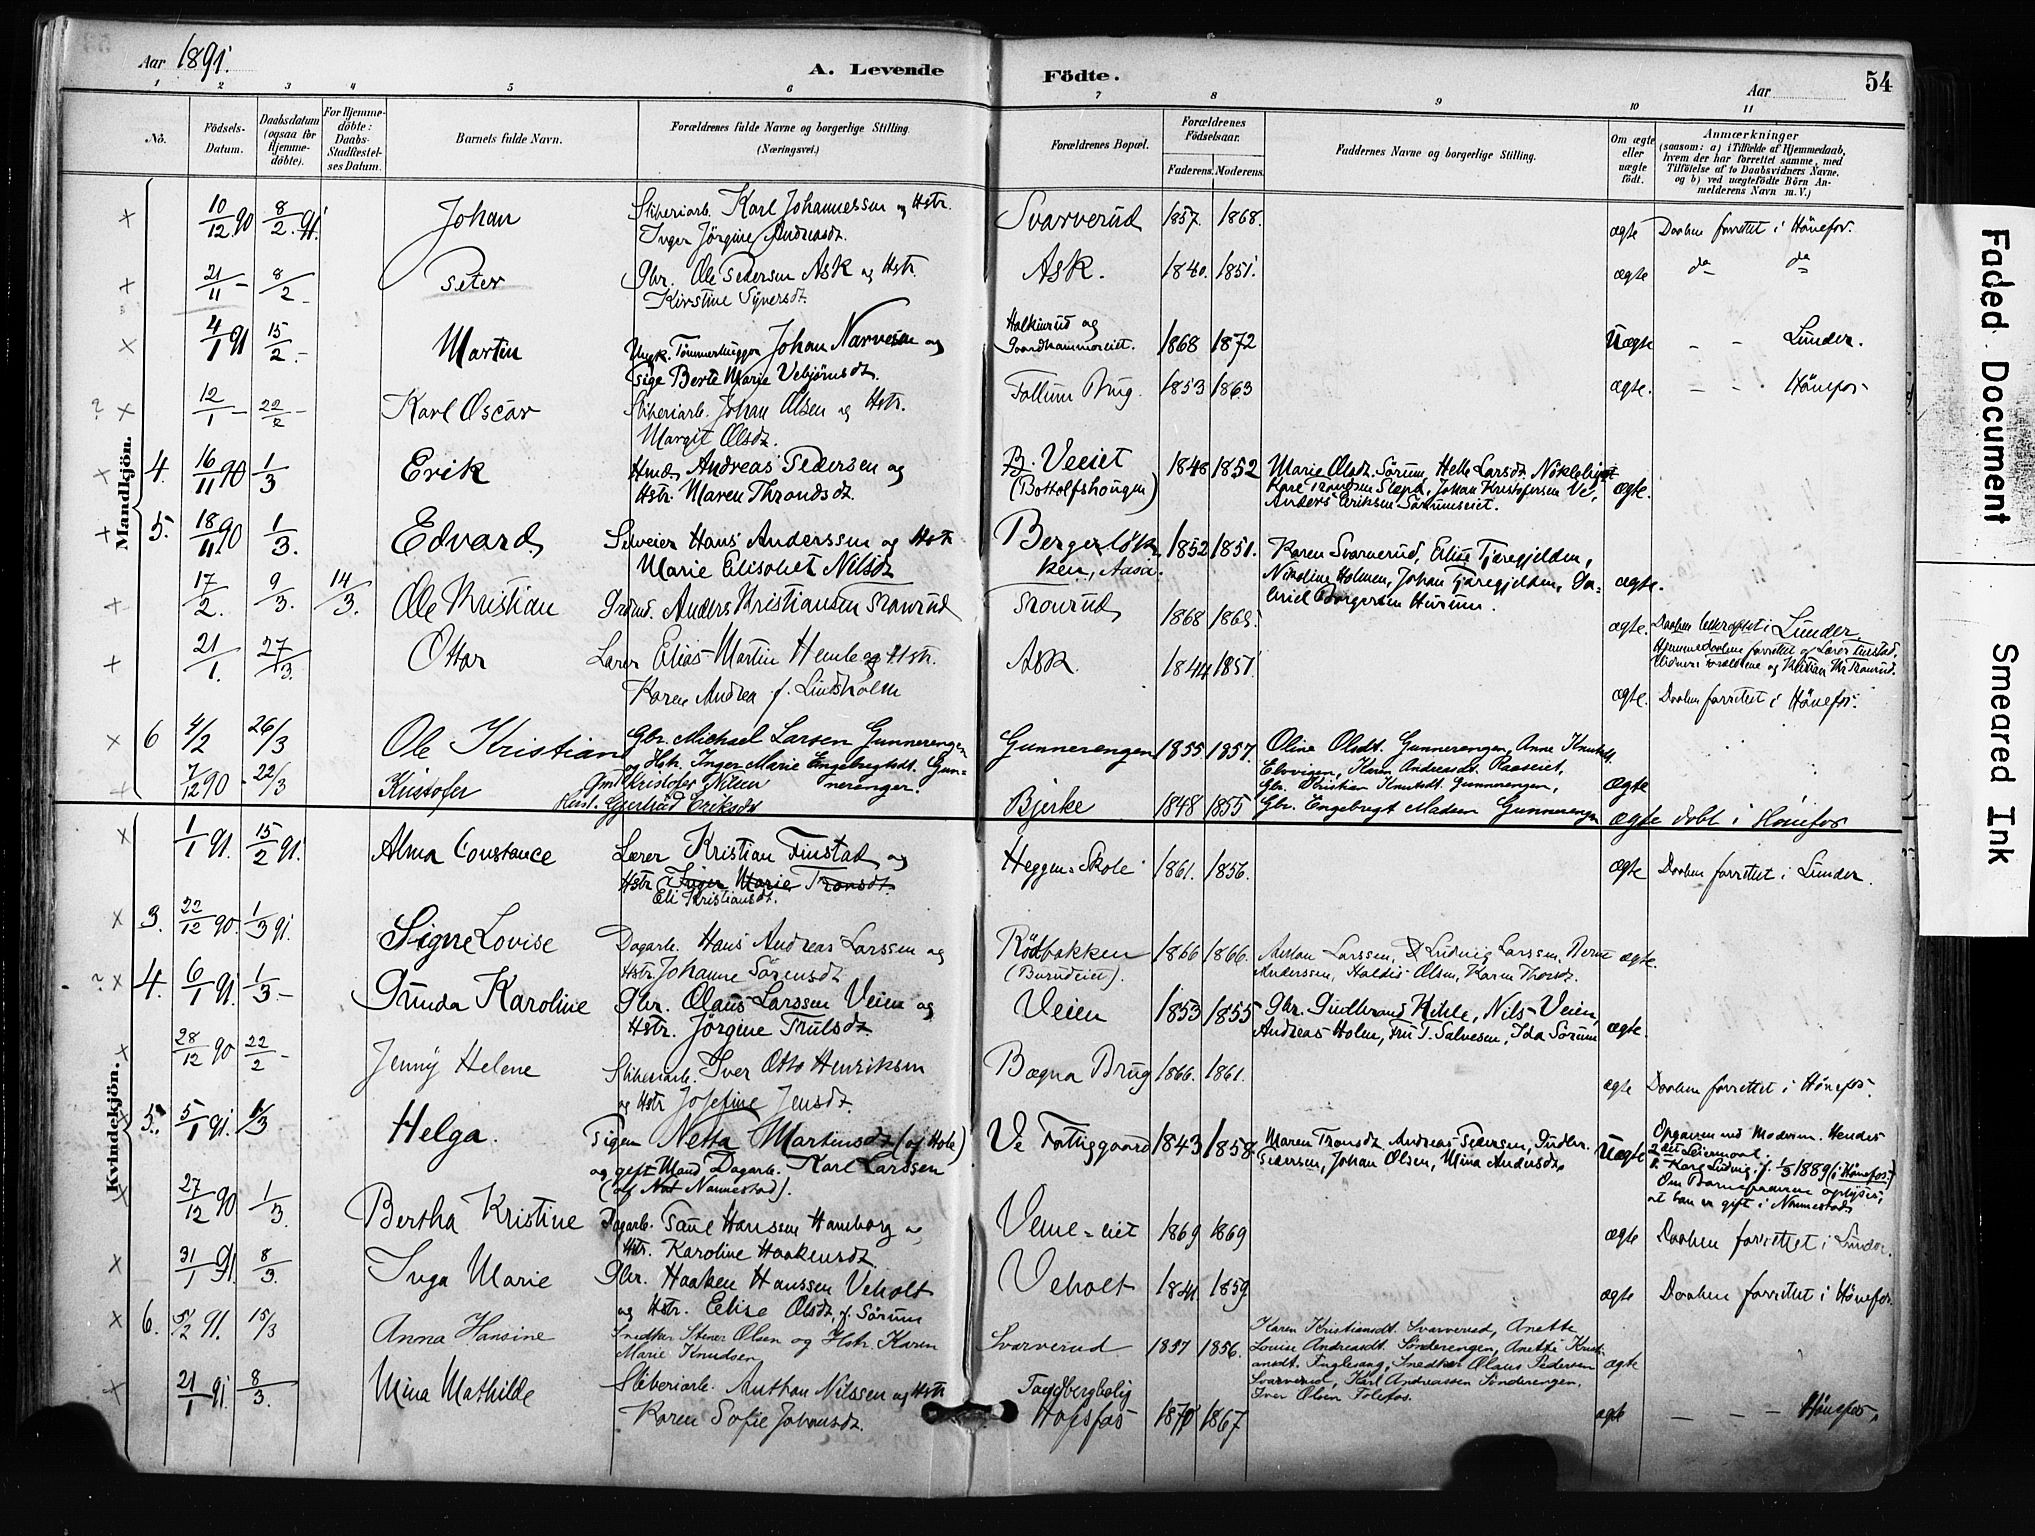 Aar 1891.
A. Levende Födte.
Aar
54
1 2 3 4 5 6 7 8 9 10 11
No.
Födsels-Datum.
Daabsdatum (ogsaa for Hjemmedöbte).
For Hjemmedöbte: Daabs-Stadfæstelses Datum.
Barnets fulde Navn.
Forældrenes fulde Navne og borgerlige Stilling.
(Næringsvei.)
Forældrenes Bopæl.
Forældrenes Födselsaar.
Faderens. Moderens.
Faddernes Navne og borgerlige Stilling.
Om ægte eller uægte födt.
Anmærkninger
(saasom: a) i Tilfælde af Hjemmedaab,
hvem der har forrettet samme, med
Tilföielse af to Daabsvidners Navne,
og b) ved uægtefödte Börn Anmelderens Navn m. V.)
Mandkjön.
10/12 90 8/2 91. Johan Sliberiarb. Karl Johannessen og Hstr. Svarverud 1857. 1868. ægte Daaben forrettet i Hönefos.
Inger Jörgine Andreasdt.
21/11 - 8/2 - Peter Gbr. Ole Pedersen Ask og Hstr. Ask. 1840. 1851. ægte do do
Kirstine Syversdt.
4/1 91 15/2 - Martin Ungk. Tømmerhugger Johan Narvesen og 1868 1872 Uægte - - Lunder.
Pige Berte Marie Vebjörnsdt.
12/1 - 22/2 - Karl Oscar Sliberiarb. Johan Olsen og Hstr. Follum Brug. 1853 1863 ægte. - - Hönefos
Margit Olsdt.
4. 16/11 90 1/3 Erik Hmd. Andreas Pedersen og B. Veeiet 1848 1852 Marie Olsdt. Sörum, Helle Larsdt.
Hstr. Maren Throndsdt. (Bottolfshougen) Johan Kristofersen Ve, ægte.
Anders Eriksen Sörumseiet.
5. 18/11 90 1/3. Edvard Selveier Hans Anderssen og Hstr. Bergerløkken, Aasa. 1852 1851. Karen Svarverud, Elise Tjæregjelden,
Marie Elisabet Nilsdt. Nikoline Holmen, Johan Tjæregjelden, Gabriel Borgersen Hurum. ægte.
17/2. 9/3. 14/3. Ole Kristian Grdmd. Anders Kristiansen Tranrud Tranrud 1868 1865. ægte. Daaben bekræftet i Lunder.
Hjemmedaaben forrettet af Lærer Finstad,
21/1. 27/3. Ottar Lærer Elias Martin Hemle og Hstr. Ask 1844 1851 ægte. Daaben forrettet i Hönefos.
Karen Andrea f. Lindholm
6 4/2 26/3 Ole Kristian Gbr. Michael Larsen Gunnerengen Gunnerengen 1855 1857. Oline Olsdt. Gunnerengen, Anne Knutsdt.
og Hstr. Inger Marie Engebrigtsdt. Gunnerengen. Elvvigen, Karen Andreasdt. Raaseiet,
Gbr. Kristian Knutsdt. Gunnerengen, ægte
7/12 90 - 22/3 Kristofer Kristofer Nilsen Bjerke 1848 1855 Gbr. Engebrigt Madsen Gunnerengen ægte döbt i Hönefos
Hust. Gjertrud Eriksdt
Kvindekjön.
1/1 91. 15/2 91. Alma Constance Lærer Kristian Finstad og Heggen Skole 1861. 1856. ægte Daaben forrettet i Lunder.
Hstr. Inger Marie Tronsdt.
Eli Kristiansdt.
3. 22/12 90. 1/3 91. Signe Lovise Dagarb. Hans Andreas Larssen og Rödbakken 1866 1866. Anton Larssen, Ludvig Larssen, ægte.
Hstr. Johanne Sörensdt. (Burudeiet) Anderssen, Haldis Olsen, Karen Thorsdt.
4. 6/1 91. 1/3 - Gunda Karoline Gbr. Olaus Larssen Veien og Veien 1853 1855 Gbr. Gudbrand Kihle, Nils Veien,
Hstr. Jörgine Trulsdt. Andreas Holm, Fru T. Salvesen, Ida Sörum ægte.
28/12 90 22/2 - Jenny Helene Sliberiarb. Iver Otto Henriksen Bægna Brug 1866. 1861. ægte Daaben forrettet i Hönefos.
og Hstr. Josefine Jensdt.
5. 5/1 91. 1/3 Helga. Pigen Netta Martinsdt. (af Hole) Ve Fattiggaard 1843 1858. Maren Tronsdt. Andreas Pedersen, Gudbr. Uægte
og gift Mand Dagarb. Karl Larssen Pedersen, Johan Olsen, Mina Andersdt.
(af Nannestad). Opgaven ved Moderen. Hendes
2det Leiermaal.
1. Karl Ludvig, f. 1/3 1889 (i Hönefos)
Om Barnefaderen oplyses,
at han er gift i Nannestad
27/12 90 1/3. Bertha Kristine Dagarb. Paul Hanssen Hamborg og Veme-eiet 1869 1869 ægte Daaben forrettet i Lunder.
Hstr. Karoline Haakensdt.
31/1 91. 8/3. Inga Marie Gbr. Haaken Hanssen Veholt Veholt 1841. 1859 ægte Daaben forrettet i Hönefos.
og Hstr. Elise Olsdt. f. Sörum
6. 5/2 91. 15/3 Anna Hansine Snedker Stener Olsen og Hstr. Karen Svarverud 1857 1856. Karen Kristiansdt. Svarverud, Anette
Marie Knudsen Louise Andreasdt. Sönderengen, Anette Kristiansdt. Fuglesang, Snedker Olaus Pedersen ægte
Svarverud, Karl Andreassen Sönderengen,
Iver Olsen Folefos.
21/1 91. 8/3. Mina Mathilde Sliberiarb. Anthon Nilssen og Hstr. Tandbergbolig 1870 1867. ægte - - - Hönefos.
Karen Sofie Johansdt. Hofsfos
Faded Document
Smeared Ink